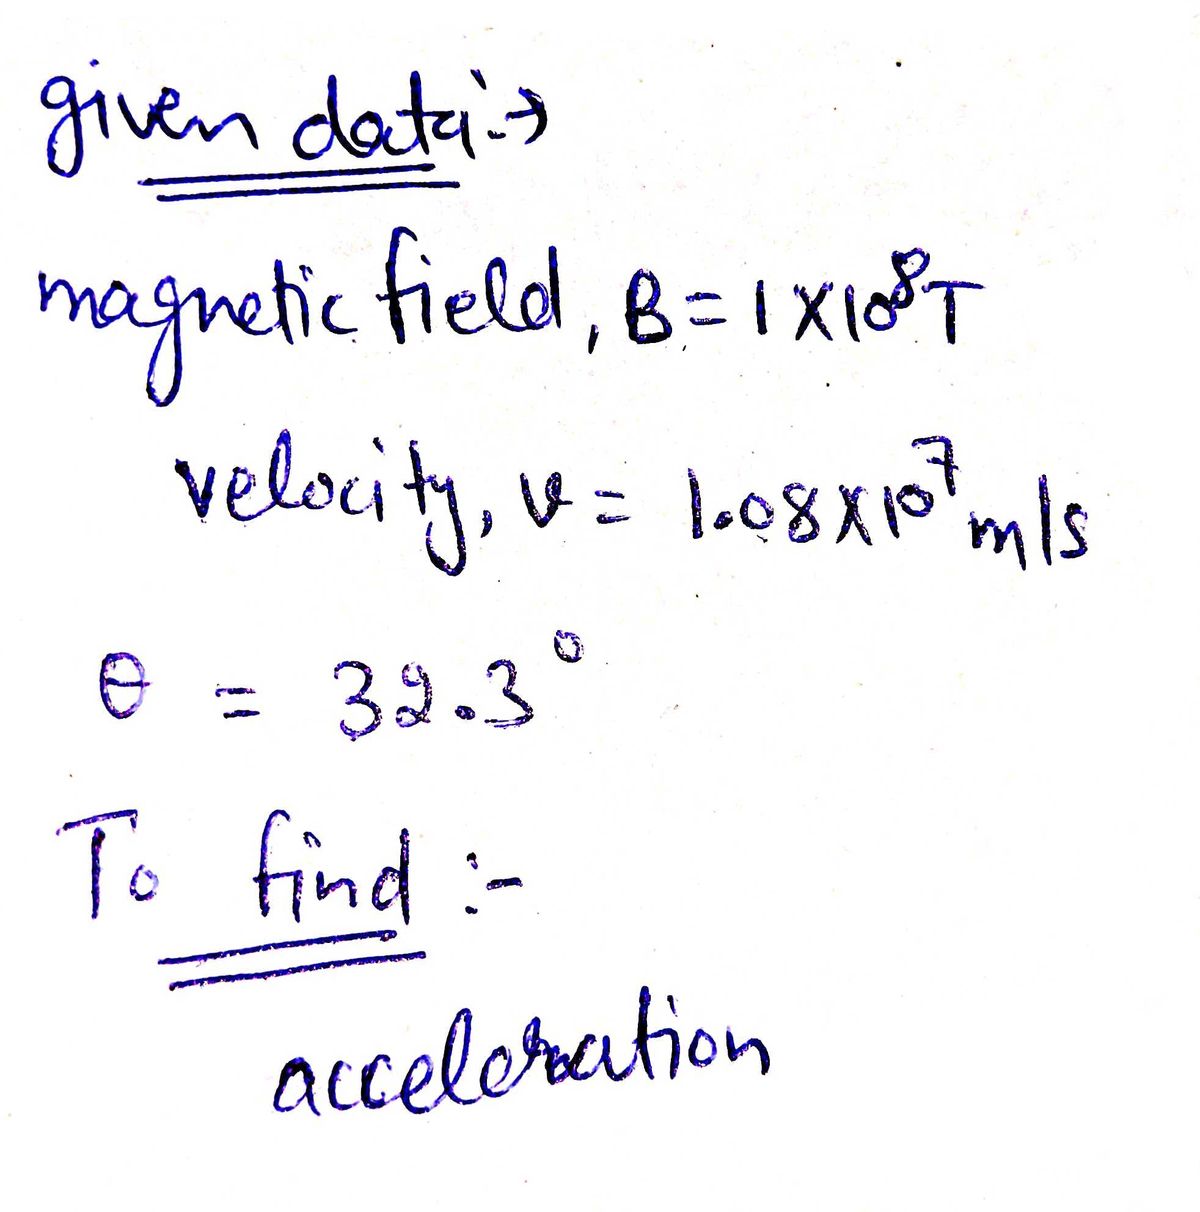 given data:→
magnetic field, B = 1 X 10⁸ T
velocity, v = 1.08 X 10⁷ m/s
θ = 32.3°
To find :-
acceleration